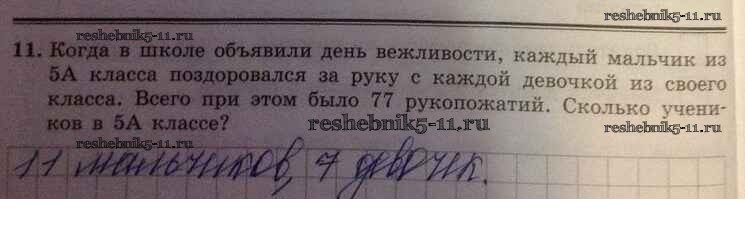 reshebnik5-11.ru
reshebnik5-11.ru
11. Когда в школе объявили день вежливости, каждый мальчик из
5А класса поздоровался за руку с каждой девочкой из своего
класса. Всего при этом было 77 рукопожатий. Сколько учени-
ков в 5А классе?
reshebnik5-11.ru
reshebnik5-11.ru
reshebnik5-11.ru
11 мальчиков, 7 девочек.